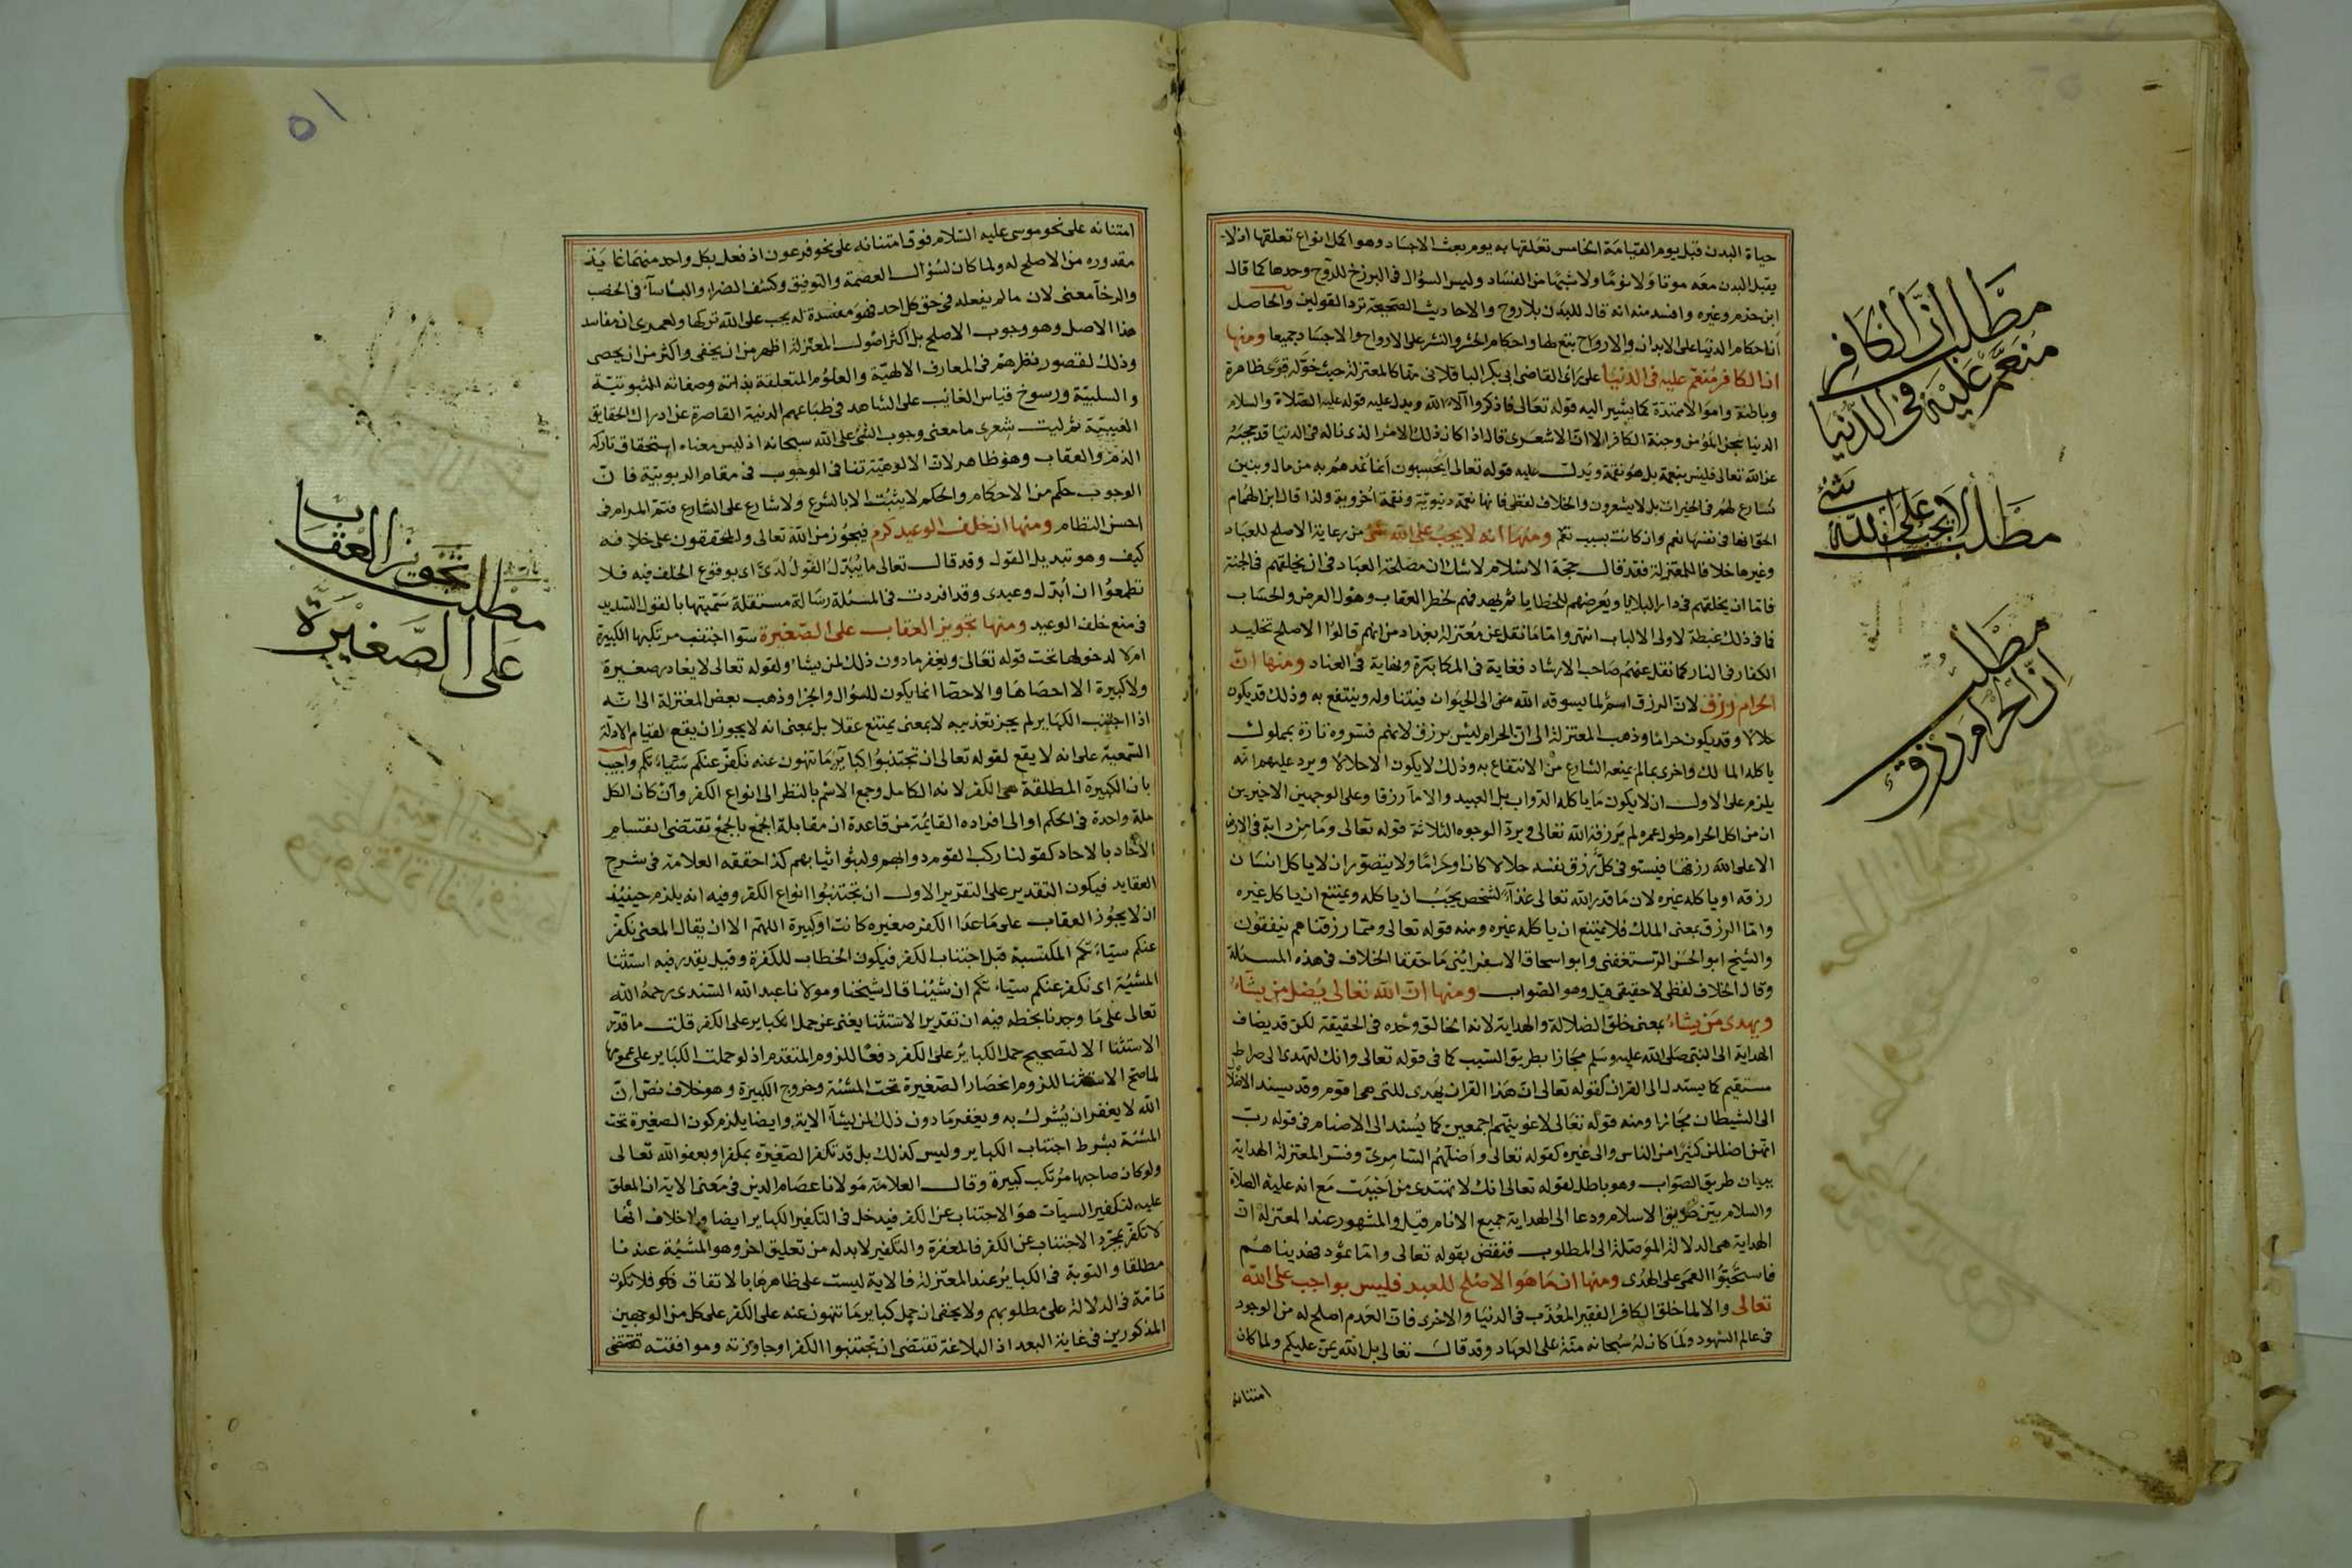 مطلب ان الكافر
منعم عليه في الدنيا
مطلب لا يجب على الله شئ
مطلب
ان الحرام رزق
حياة البدن قبل يوم القيامة الخامس تعلقها به يوم بعث الاجساد وهو اكمل انواع تعلقها اذ لا
يقبل البدن معه موتا ولا نوما ولا شيئا من الفساد وليس السؤال في البرزخ للروح وحدها كما قال
ابن حزم وغيره وافسد منه انه قال للبدن بلا روح والاحاديث الصحيحة ترد القولين والحاصل
ان احكام الدنيا على الابدان والارواح تبع لها واحكام الحشر والنشر على الارواح والاجساد جميعا ومنها
ان الكافر منعم عليه في الدنيا على راى القاضى ابى بكر الباقلانى منا كالمعتزلة حيث خوله قوى ظاهرة
وباطنة واموالا ممتدة كما يشير اليه قوله تعالى فاذكروا آلاء الله ويدل عليه قوله عليه الصلاة والسلام
الدنيا سجن المؤمن وجنة الكافر الا ان الاشعرى قال اذا كان ذلك الامر الذى ناله في الدنيا قد حجبه
عن الله تعالى فليس بنعمة بل هو نقمة ويدل عليه قوله تعالى ايحسبون انما نمدهم به من مال وبنين
نسارع لهم في الخيرات بل لا يشعرون والخلاف لفظى فانها نعمة دنيوية ونقمة اخروية ولذا قال ابن الهمام
الحق انها في نفسها نعم وان كانت بسبب نقم ومنها انه لا يجب على الله شئ من رعاية الاصلح للعباد
وغيرها خلافا للمعتزلة فقد قال حجة الاسلام لا شك ان مصلحة العباد في ان يخلقهم في الجنة
فاما ان يخلقهم في دار البلايا ويعرضهم للخطايا ثم يهدفهم لخطر العقاب وهول العرض والحساب
فما في ذلك غبطة لاولى الالباب انتهى واما ما نقل عن معتزلة بغداد من انهم قالوا الاصلح تخليد
الكفار في النار كما نقل عنهم صاحب الارشاد فغاية في المكابرة ونهاية في العناد ومنها ان
الحرام رزق لان الرزق اسم لما يسوقه الله تعالى الى الحيوان فيتناوله وينتفع به وذلك قد يكون
حلالا وقد يكون حراما وذهب المعتزلة الى ان الحرام ليس برزق لانهم فسروه تارة بمملوك
ياكله المالك واخرى بما لم يمنعه الشارع من الانتفاع به وذلك لا يكون الا حلالا ويرد عليهم انه
يلزم على الاول ان لا يكون ما ياكله الدواب بل العبيد والاماء رزقا وعلى الوجهين الاخيرين
ان من اكل الحرام طول عمره لم يرزقه الله تعالى ويرد الوجوه الثلاثة قوله تعالى وما من دابة في الارض
الا على الله رزقها فيستوفى كل رزق نفسه حلالا كان او حراما ولا يتصور ان لا ياكل انسان
رزقه او ياكله غيره لان ما قدر الله تعالى غذاء لشخص يجب ان ياكله ويمتنع ان ياكل غيره
واما الرزق بمعنى الملك فلا يمتنع ان ياكله غيره ومنه قوله تعالى ومما رزقناهم ينفقون
والشيخ ابو الحسن الرستغفنى وابو اسحاق الاسفرائينى ما حققا الخلاف في هذه المسئلة
وقال الخلاف لفظى لا حقيقى قيل وهو الصواب ومنها ان الله تعالى يضل من يشاء
ويهدى من يشاء بمعنى خلق الضلالة والهداية لانه الخالق وحده في الحقيقة لكن قد يضاف
الهداية الى النبى صلى الله عليه وسلم مجازا بطريق السبب كما في قوله تعالى وانك لتهدى الى صراط
مستقيم كما يسند الى القران كقوله تعالى ان هذا القران يهدى للتى هى اقوم وقد يسند الاضلال
الى الشيطان مجازا ومنه قوله تعالى لاغوينهم اجمعين كما يسند الى الاصنام في قوله رب
انهن اضللن كثيرا من الناس والى غيره كقوله تعالى واضلهم السامرى وفسر المعتزلة الهداية
ببيان طريق الصواب وهو باطل لقوله تعالى انك لا تهتدى من احببت مع انه عليه الصلاة
والسلام بين طريق الاسلام ودعا الى الهداية جميع الانام قيل والمشهور عند المعتزلة ان
الهداية هى الدلالة الموصلة الى المطلوب فنقض بقوله تعالى واما ثمود فهديناهم
فاستحبوا العمى على الهدى ومنها ان ما هو الاصلح للعبد فليس بواجب على الله
تعالى والا لما خلق الكافر الفقير المعذب في الدنيا والاخرى فان العدم اصلح له من الوجود
في عالم الشهود ولما كان له سبحانه منة على العباد وقد قال تعالى بل الله يمن عليكم ولما كان
امتنانه
٥١
امتنانه على نحو موسى عليه السلام فوق امتنانه على نحو فرعون اذ فعل بكل واحد منهما غاية
مقدوره من الاصلح له ولما كان لسؤال العصمة والتوفيق وكشف الضراء والبأساء في الخصب
والرخاء معنى لان ما لم يفعله في حق كل احد فهو مفسدة له يجب على الله تركها ولعمرى ان مفاسد
هذا الاصل وهو وجوب الاصلح بل اكثر اصول المعتزلة اظهر من ان يخفى واكثر من ان يحصى
وذلك لقصور نظرهم في المعارف الالهية والعلوم المتعلقة بذاته وصفاته الثبوتية
والسلبية ورسوخ قياس الغائب على الشاهد في طباعهم الدنية القاصرة عن ادراك الحقايق
الغيبية ثم ليت شعرى ما معنى وجوب الشئ على الله سبحانه اذ ليس معناه استحقاق تاركه
الذم والعقاب وهو ظاهر لان الالوهية تنافى الوجوب في مقام الربوبية فان
الوجوب حكم من الاحكام والحكم لا يثبت الا بالشرع ولا شارع على الشارع فتم المرام في
احسن النظام ومنها ان خلف الوعيد كرم فيجوز من الله تعالى والمحققون على خلافه
كيف وهو تبديل القول وقد قال تعالى ما يبدل القول لدى اى بوقوع الخلف فيه فلا
تطمعوا ان ابدل وعيدى وقد افردت في المسئلة رسالة مستقلة سميتها بالقول السديد
في منع خلف الوعيد ومنها تجويز العقاب على الصغيرة سوا اجتنب مرتكبها الكبيرة
ام لا لدخولها تحت قوله تعالى ويغفر ما دون ذلك لمن يشاء ولقوله تعالى لا يغادر صغيرة
ولا كبيرة الا احصاها والاحصا انما يكون للسؤال والجزا وذهب بعض المعتزلة الى انه
اذا اجتنب الكباير لم يجز تعذيبه لا بمعنى يمتنع عقلا بل بمعنى انه لا يجوز ان يقع لقيام الادلة
السمعية على انه لا يقع لقوله تعالى ان تجتنبوا كباير ما تنهون عنه نكفر عنكم سيئاتكم واجيب
بان الكبيرة المطلقة هى الكفر لانه الكامل وجمع الاسم بالنظر الى انواع الكفر وان كان الكل
ملة واحدة في الحكم او الى افراده القايمة من قاعدة ان مقابلة الجمع بالجمع تقتضى انقسام
الآحاد بالاحاد كقولنا ركب القوم دوابهم ولبثوا ثيابهم كذا حققه العلامة في شرح
العقايد فيكون التقدير على التقرير الاول ان تجتنبوا انواع الكفر وفيه انه يلزم حينئذ
ان لا يجوز العقاب على ما عدا الكفر صغيرة كانت او كبيرة اللهم الا ان يقال المعنى نكفر
عنكم سيئاتكم المكتسبة قبل اجتناب الكفر فيكون الخطاب للكفرة وقيل يقدر فيه استثنا
المشيئة اى نكفر عنكم سيئاتكم ان شئنا قال شيخنا ومولانا عبد الله السندى رحمه الله
تعالى على ما وجدنا بخطه فيه ان تقدير الاستثنا يغنى عن حمل الكباير على الكفر قلت ما قدر
الاستثنا الا لتصحيح حمل الكبائر على الكفر دفعا للزوم المتقدم اذ لو حملت الكباير على عمومها
لما صح الاستثنا للزوم انحصار الصغيرة تحت المشئة وخروج الكبيرة وهو خلاف نص ان
الله لا يغفر ان يشرك به ويغفر ما دون ذلك لمن يشآ الاية وايضا يلزم كون الصغيرة تحت
المشئة بشرط اجتناب الكباير وليس كذلك بل قد تكفر الصغيرة بمكفر او بعفو الله تعالى
ولو كان صاحبها مرتكب كبيرة وقال العلامة مولانا عصام الدين في معنى الاية ان المعلق
عليه لتكفير السيآت هو الاجتناب عن الكفر فيدخل في التكفير الكباير ايضا ولا خلاف انها
لا تكفر بمجرد الاجتناب عن الكفر فالمغفرة والتكفير لا بد له من تعليق اخر وهو المشيئة عندنا
مطلقا والتوبة في الكبائر عند المعتزلة فالاية ليست على ظاهرها بالاتفاق فلا تكون
تامة في الدلالة على مطلوبهم ولا يخفى ان حمل كباير ما تنهون عنه على الكفر على كل من الوجهين
المذكورين في غاية البعد اذ البلاغة تقتضى ان تجتنبوا الكفر اوجازته وموافقته تقتضى
مطلب تجويز العقاب
على الصغيرة